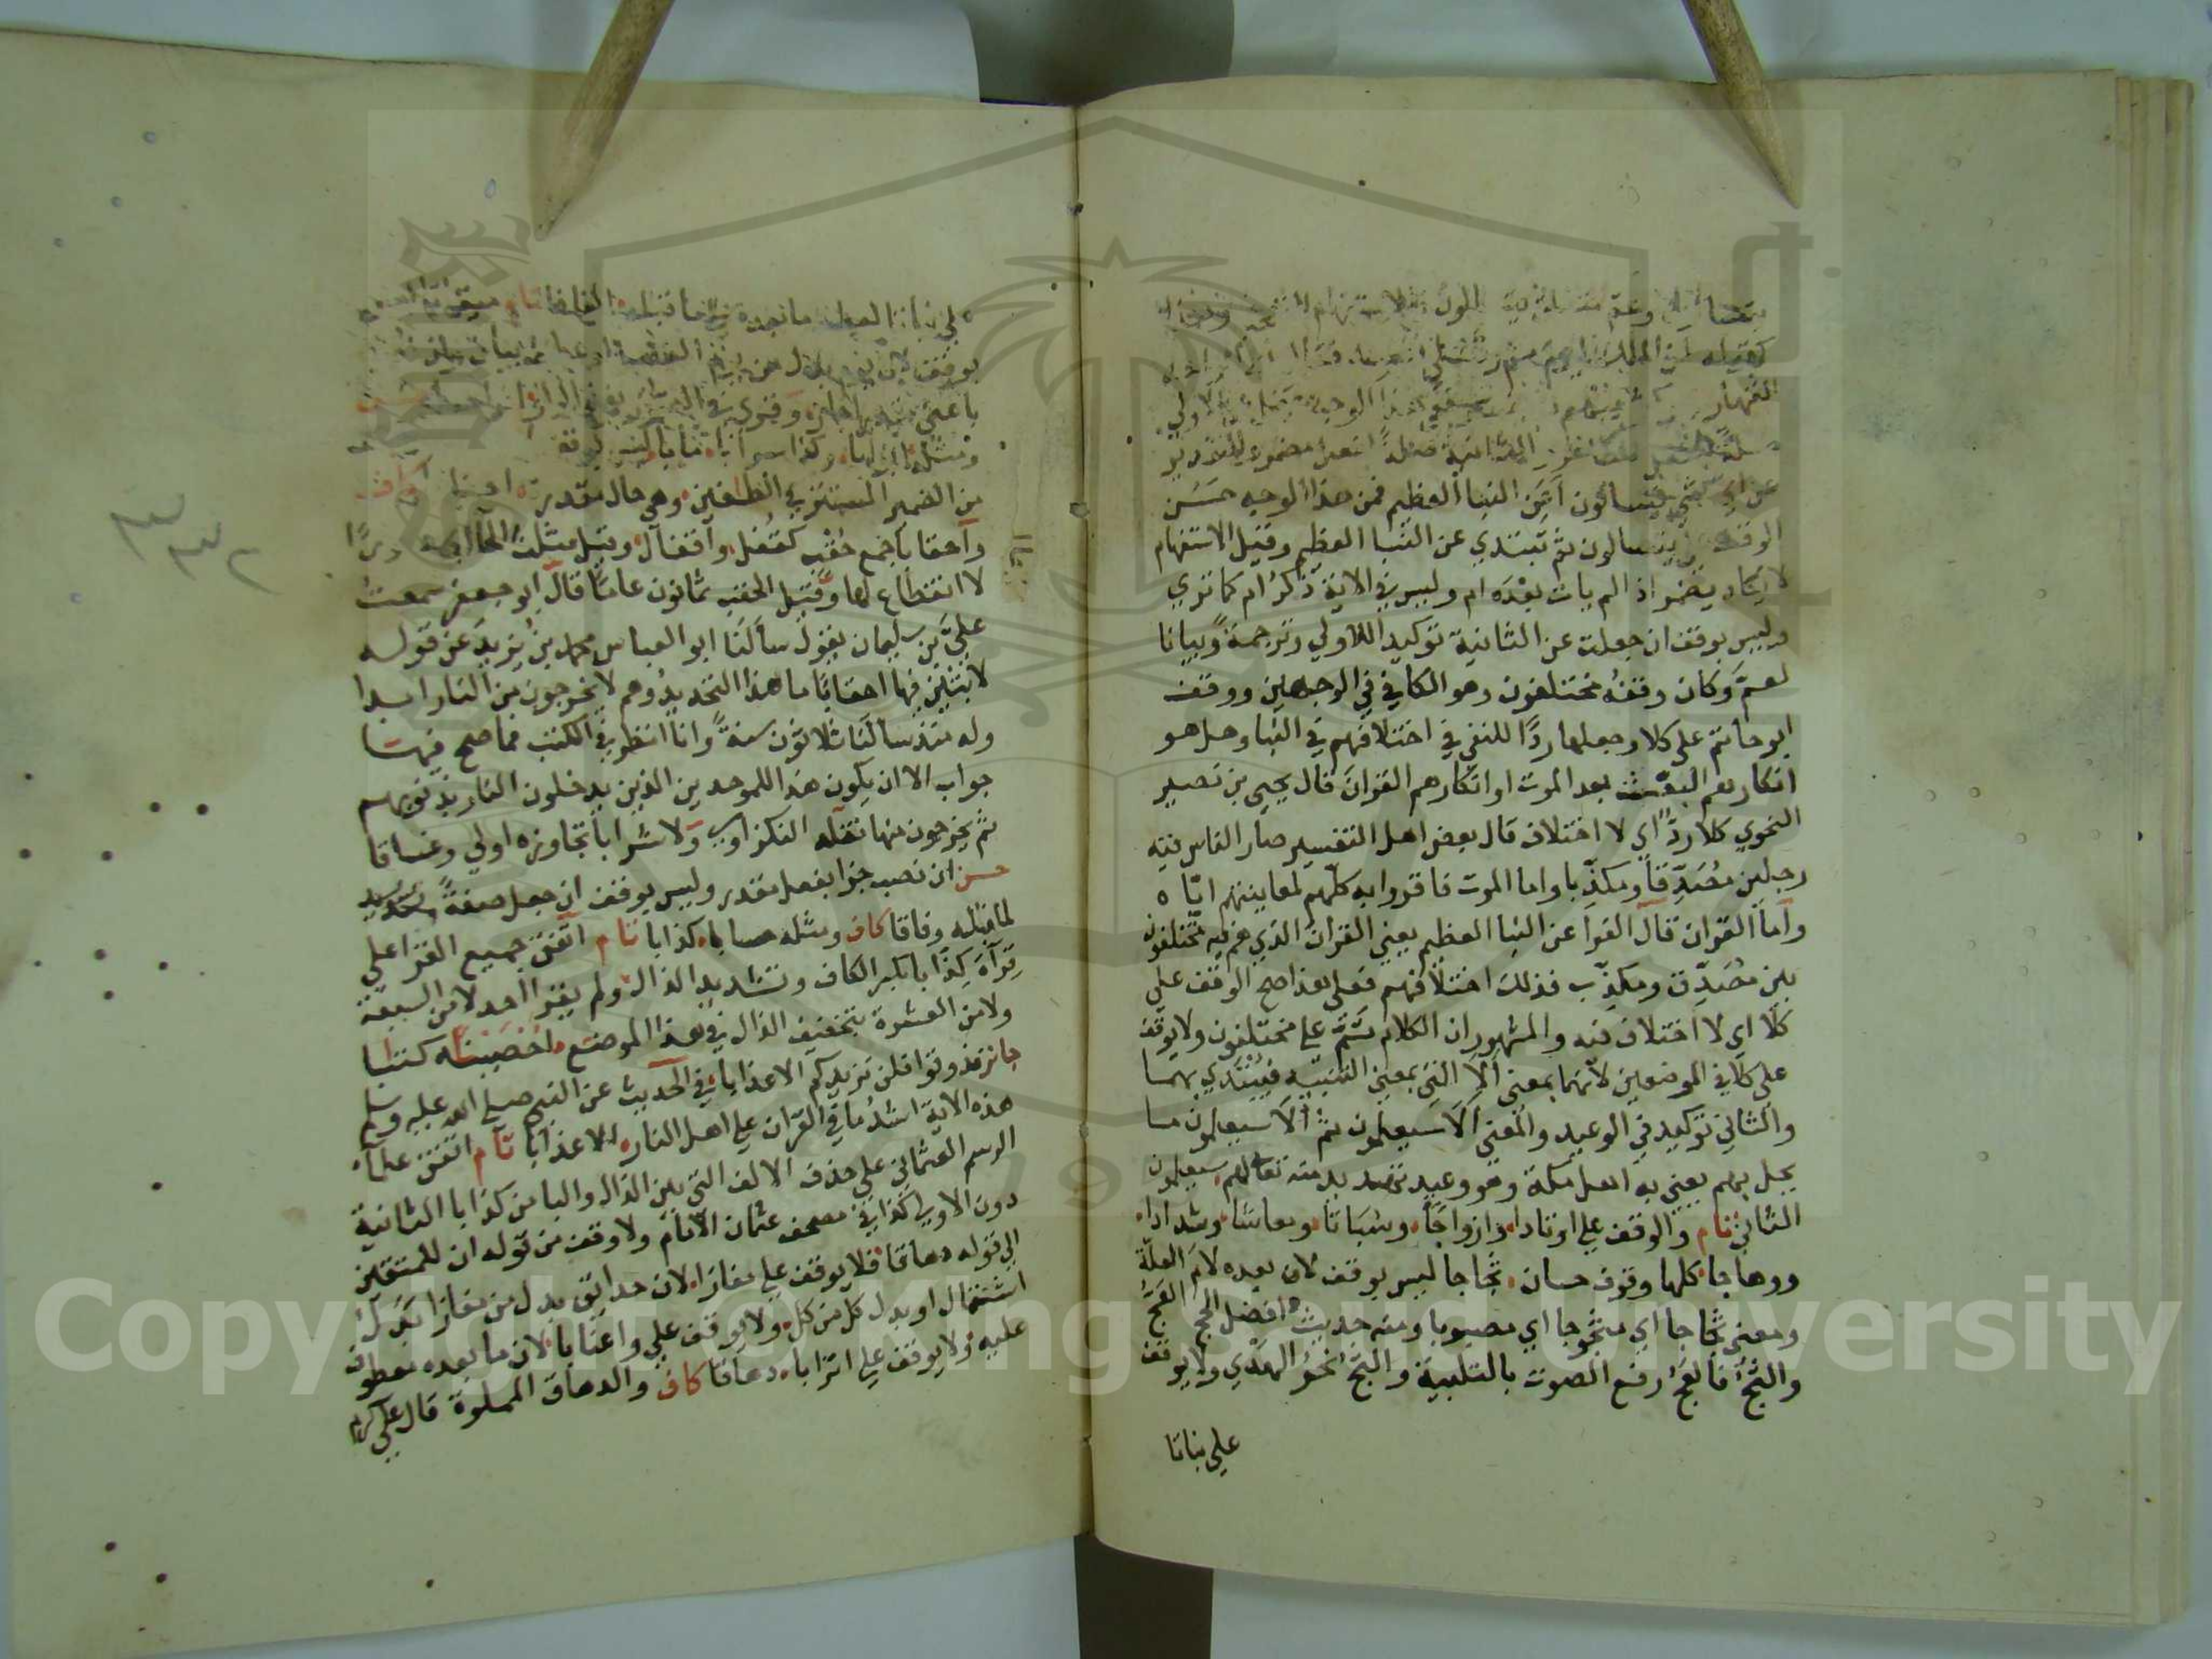 يتساءلون وعم
كقوله لمن الملك اليوم ثم
القهار
عن اي شي يتسالون اعن النبا العظيم فمن هذا الوجه حسن
الوقف على يتسالون ثم تبتدي عن النبا العظيم وقيل الاستفهام
لا يكاد يضمر اذا لم يات بعده ام وليس في الاية ذكر ام كما تري
وليس بوقف ان جعلت عن الثانية توكيدا للاولي وترجمة وبيانا
لعم وكان وقفه مختلفون وهو الكافي في الوجهين ووقف
ابو حاتم على كلا وجعلها ردا للنفي في اختلافهم في النبا وهل هو
انكارهم البعث بعد الموت او انكارهم القران قال يحيي بن نصير
النحوي كلا ردا اي لا اختلاف قال بعض اهل التفسير صار الناس فيه
رجلين مصدقا ومكذبا واما الموت فاقروا به كلهم لمعاينتهم اياه
واما القران فقال الفرا عن النبا العظيم يعني القران الذي هم فيه مختلفون
بين مصدق ومكذب فذلك اختلافهم فعلى هذا صح الوقف علي
كلا اي لا اختلاف فيه والمشهور ان الكلام تم على مختلفون ولا يوقف
على كلا في الموضعين لانهما بمعنى الا التي بمعني التنبيه فيبتدي بهما
والثاني توكيد في الوعيد والمعني الا سيعلمون ثم الا سيعلمون ما
يحل بهم يعني به اهل مكة وهو وعيد تهديد منه تعالى لهم سيعلمون
الثاني تام والوقف علي اوتادا وازواجا وسباتا ومعاشا وشدادا
ووهاجا كلها وقوف حسان ثجاجا ليس بوقف لان بعده لام العلة
ومعنى ثجاجا اي مثجوجا اي مصبوبا ومنه حديث افضل الحج العج
والثج فالعج رفع الصوت بالتلبية والثج نحر الهدي ولا يوقف
علي نباتا
ما بعده على ما قبله الفافا تام ميقاتا
بوقف لان يوم بدل من يوم الفصل
ومثله ابوابا وكذا سرابا مابا ليس بوقف
من الضمير المستتر في الطاغين وهي حال مقدرة احقابا كاف
واحقابا جمع حقب كقفل واقفال
لا انقطاع لها وقيل الحقب ثمانون عاما قال ابو جعفر سمعت
علي بن سليمان يقول سالنا ابو العباس محمد بن يزيد عن قوله
لابثين فيها احقابا ما هذا التحديد وهم لا يخرجون من النار ابدا
وله منذ سالنا ثلاثون سنة وانا انظر في الكتب فما صح فيها
جواب الا ان يكون هذا للموحدين الذين يدخلون النار بذنوبهم
ثم يخرجون منها نقله النكزاوي ولا شرابا تجاوزه اولي وغساقا
حسن ان نصب جزا بفعل مقدر وليس بوقف ان جعل صفة
لما قبله وفاقا كاف ومثله حسابا كذابا تام اتفق جميع القرا علي
قراة كذابا بكسر الكاف وتشديد الذال ولم يقرا احد لا من السبعة
ولا من العشرة بتخفيف الذال في هذا الموضع احصيناه كتابا
جائز فذوقوا فلن نزيدكم الا عذابا في الحديث عن النبي صلى الله عليه وسلم
هذه الاية اشد ما في القران علي اهل النار الا عذابا تام اتفق علما
الرسم العثماني علي حذف الالف التي بين الذال والبا من كذابا الثانية
دون الاولي كذا في مصحف عثمان الامام ولا وقف من قوله ان للمتقين
الي قوله دهاقا فلا يوقف علي مفازا لان حدائق بدل من مفازا بدل
اشتمال او بدل كل من كل ولا يوقف علي واعنابا لان ما بعده معطوف
عليه ولا يوقف علي اترابا دهاقا كاف والدهاق المملوة قال علي كرم
٣٣٢
Copyright © King Saud University